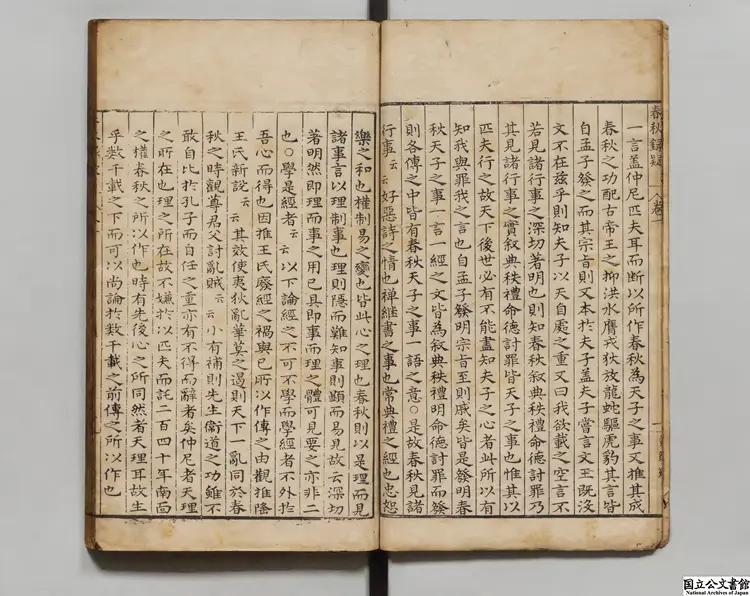 一言蓋仲尼匹夫耳而断以所作春秋為天子之事又推其成
春秋之功配古帝王之抑洪水膺戎狄放龍蛇驅虎豹其言皆
自孟子發之而其宗旨則又本於夫子蓋夫子嘗言文王旣沒
文不在茲乎則知夫子以天自處之重又曰我欲載之空言不
若見諸行事之深切著明也則知春秋叙典秩禮命德討罪乃
其見諸行事之實叙典秩禮命德討罪皆天子之事也惟其以
匹夫行之故天下後世必有不能盡知夫子之心者此所以有
知我與罪我之言也自孟子發明宗旨至則戚矣皆是發明春
秋天子之事一言一經之文皆為叙典秩禮明命德討罪而發
則各傳之中皆有春秋天子之事一語之意○是故春秋見諸
行事云云好惡詩之情也禅継書之事也常典禮之經也忠恕
樂之和也權制易之變也皆此心之理也春秋則以是理而見
諸事言以理制事也理則隱而難知事則顯而易見故云深切
著明然即理而事之用已具即事而理之體可見要之亦非二
也○學是經者云云以下論經之不可不學而學經者不外扵
吾心而得也因推王氏廢經之禍與已所以作傳之由觀推隆
王氏新說云云其效使夷狄亂華莫之遏則天下一亂同於春
秋之時觀尊君父討亂賊云云小有補則先生衛道之功雖不
敢自比扵孔子而自任之重亦有不得而辭者矣仲尼者天理
之所在也理之所在故不嫌扵以匹夫而託二百四十年南面
之權春秋之所以作也時有先後心之所同然者天理耳故生
乎數千載之下而可以尚論扵數千載之前傳之所以作也
春秋鐸疑
卷一
国立公文書館
National Archives of Japan